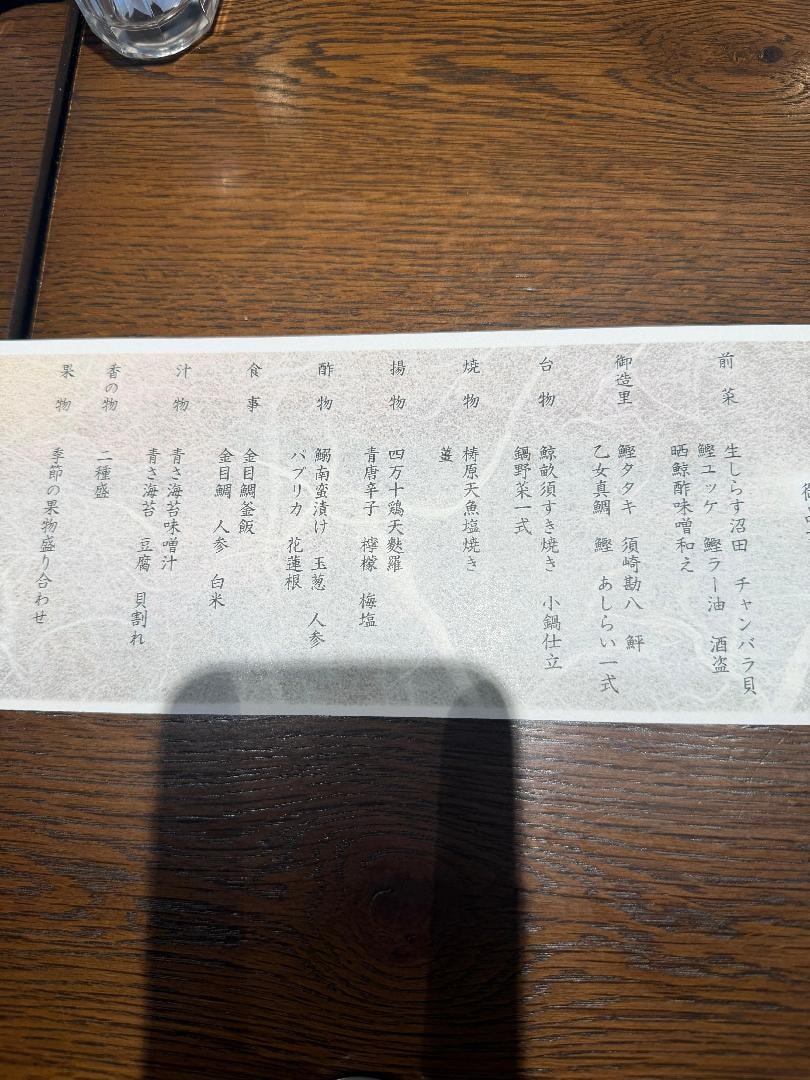 前菜
生しらす沼田 チャンバラ貝
鰹ユッケ 鰹ラー油 酒盗
晒鯨酢味噌和え
御造里
鰹タタキ 須崎勘八 鮃
乙女真鯛 鰹 あしらい一式
台物
鯨畝須すき焼き 小鍋仕立
鍋野菜一式
焼物
梼原天魚塩焼き
揚物
四万十鶏天麩羅
青唐辛子 檸檬 梅塩
酢物
鰯南蛮漬け 玉葱 人参
パプリカ 花蓮根
食事
金目鯛釜飯
金目鯛 人参 白米
汁物
青さ海苔味噌汁
青さ海苔 豆腐 貝割れ
香の物
二種盛
果物
季節の果物盛り合わせ